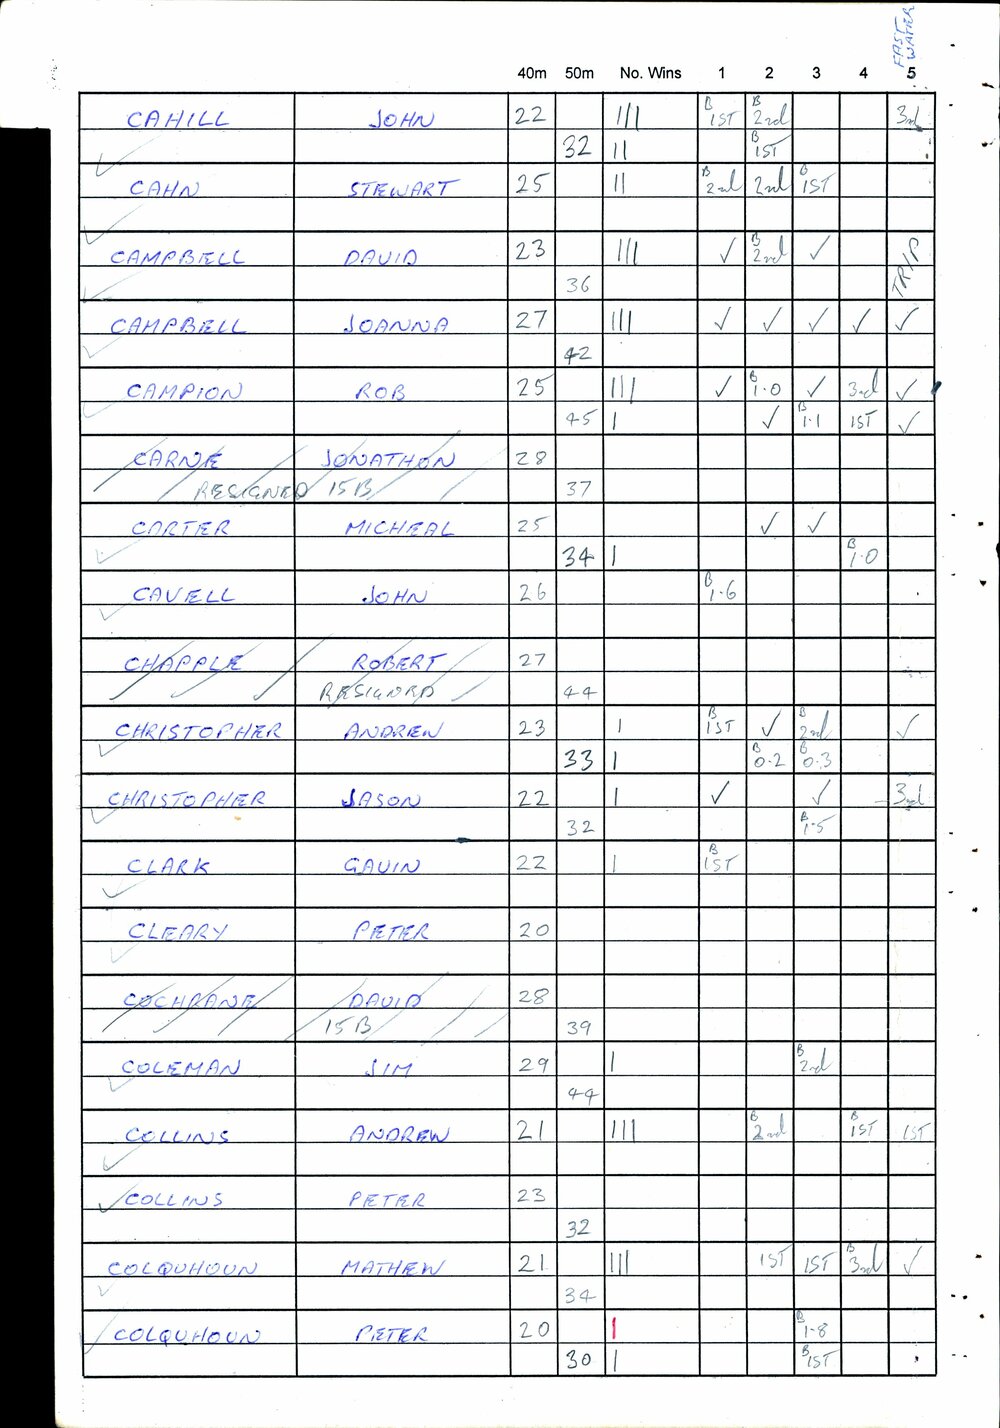 FAST WATER
40m 50m No. Wins 1 2 3 4 5
CAHILL JOHN 22 ||| B 1ST B 2nd 3rd
32 || B 1ST
CAHN STEWART 25 || B 2nd 2nd B 1ST
CAMPBELL DAVID 23 ||| ✓ B 2nd ✓ TRIP
36
CAMPBELL JOANNA 27 ||| ✓ ✓ ✓ ✓ ✓
42
CAMPION ROB 25 ||| ✓ B 1·0 ✓ 3rd ✓
45 | ✓ B 1·1 1ST ✓
CARNE JONATHON 28
RESIGNED 15B 37
CARTER MICHEAL 25 ✓ ✓
34 | B 1·0
CAVELL JOHN 26 B 1·6
CHAPPLE ROBERT 27
RESIGNED 44
CHRISTOPHER ANDREW 23 | B 1ST ✓ B 2nd ✓
33 | B 0·2 B 0·3
CHRISTOPHER JASON 22 | ✓ ✓ 3rd
32 B 1·5
CLARK GAVIN 22 | B 1ST
CLEARY PETER 20
COCHRANE DAVID 28
15B 39
COLEMAN JIM 29 | B 2nd
44
COLLINS ANDREW 21 ||| B 2nd B 1ST 1ST
✓ COLLINS PETER 23
32
COLQUHOUN MATHEW 21 ||| 1ST 1ST B 3rd ✓
34
COLQUHOUN PETER 20 | B 1·8
30 | B 1ST